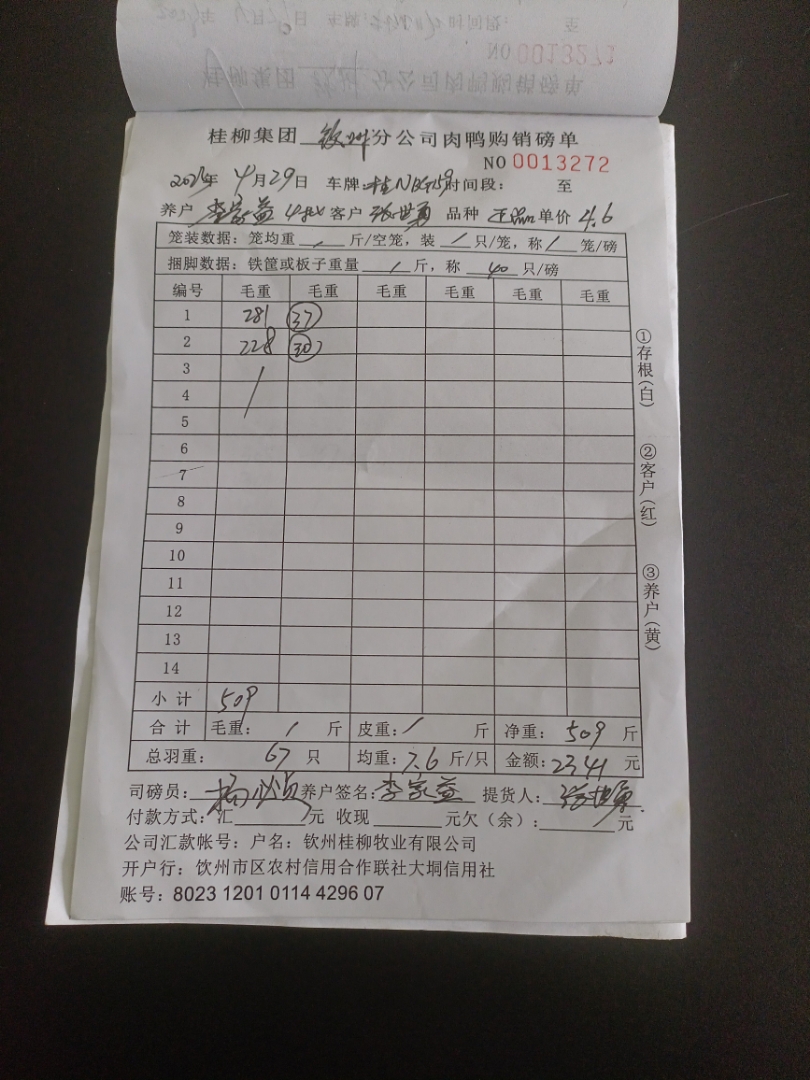 桂柳集团 钦州 分公司肉鸭购销磅单
NO 0013271
桂柳集团 钦州 分公司肉鸭购销磅单
NO 0013272
年 4月29日 车牌: 时间段: 至
养户 李家益 4批 客户 张世勇 品种 正品 单价 4.6
笼装数据: 笼均重 / 斤/空笼, 装 / 只/笼, 称 / 笼/磅
捆脚数据: 铁筐或板子重量 / 斤, 称 40 只/磅
编号 毛重 毛重 毛重 毛重 毛重 毛重
1 281 37
2 228 30
3 /
4
5
6
7
8
9
10
11
12
13
14
小计 509
合计 毛重: / 斤 皮重: / 斤 净重: 509 斤
总羽重: 67 只 均重: 7.6 斤/只 金额: 2341 元
司磅员: 养户签名: 李家益 提货人: 张世勇
付款方式: 汇 元 收现 元欠(余): 元
公司汇款帐号: 户名: 钦州桂柳牧业有限公司
开户行: 钦州市区农村信用合作联社大垌信用社
账号: 8023 1201 0114 4296 07
①存根(白)
②客户(红)
③养户(黄)